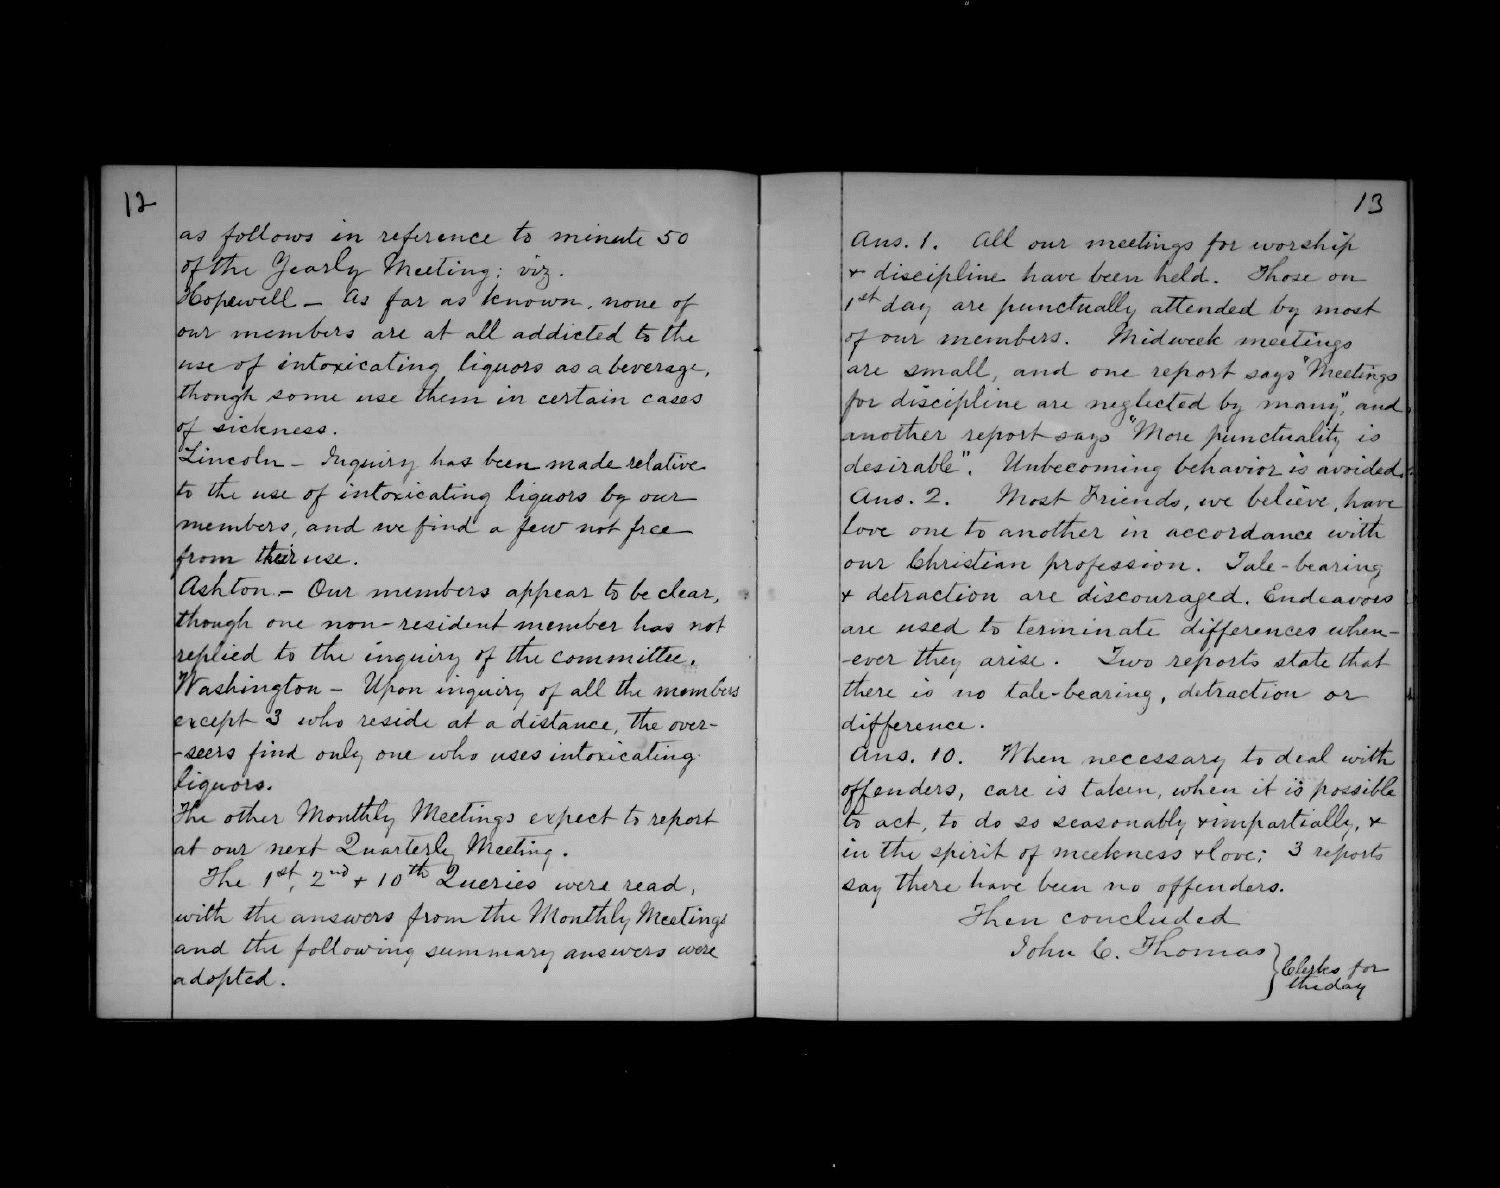 12
as follows in reference to minute 50
of the Yearly Meeting; viz.
Hopewell – As far as known, none of
our members are at all addicted to the
use of intoxicating liquors as a beverage,
though some use them in certain cases
of sickness.
Lincoln – Inquiry has been made relative
to the use of intoxicating liquors by our
members, and we find a few not free
from their use.
Ashton – Our members appear to be clear,
though one non-resident member has not
replied to the inquiry of the committee.
Washington – Upon inquiry of all the members
except 3 who reside at a distance, the over-
-seers find only one who uses intoxicating
liquors.
The other Monthly Meetings expect to report
at our next Quarterly Meeting.
The 1st, 2nd & 10th Queries were read,
with the answers from the Monthly Meetings
and the following summary answers were
adopted.
13
Ans. 1. All our meetings for worship
& discipline have been held. Those on
1st day are punctually attended by most
of our members. Midweek meetings
are small, and one report says "Meetings
for discipline are neglected by many", and
another report says "More punctuality is
desirable". Unbecoming behavior is avoided.
Ans. 2. Most Friends, we believe, have
love one to another in accordance with
our Christian profession. Tale-bearing
& detraction are discouraged. Endeavors
are used to terminate differences when-
-ever they arise. Two reports state that
there is no tale-bearing, detraction or
difference.
Ans. 10. When necessary to deal with
offenders, care is taken, when it is possible
to act, to do so seasonably & impartially, &
in the spirit of meekness & love; 3 reports
say there have been no offenders.
Then concluded
John C. Thomas
} Clerks for
the day